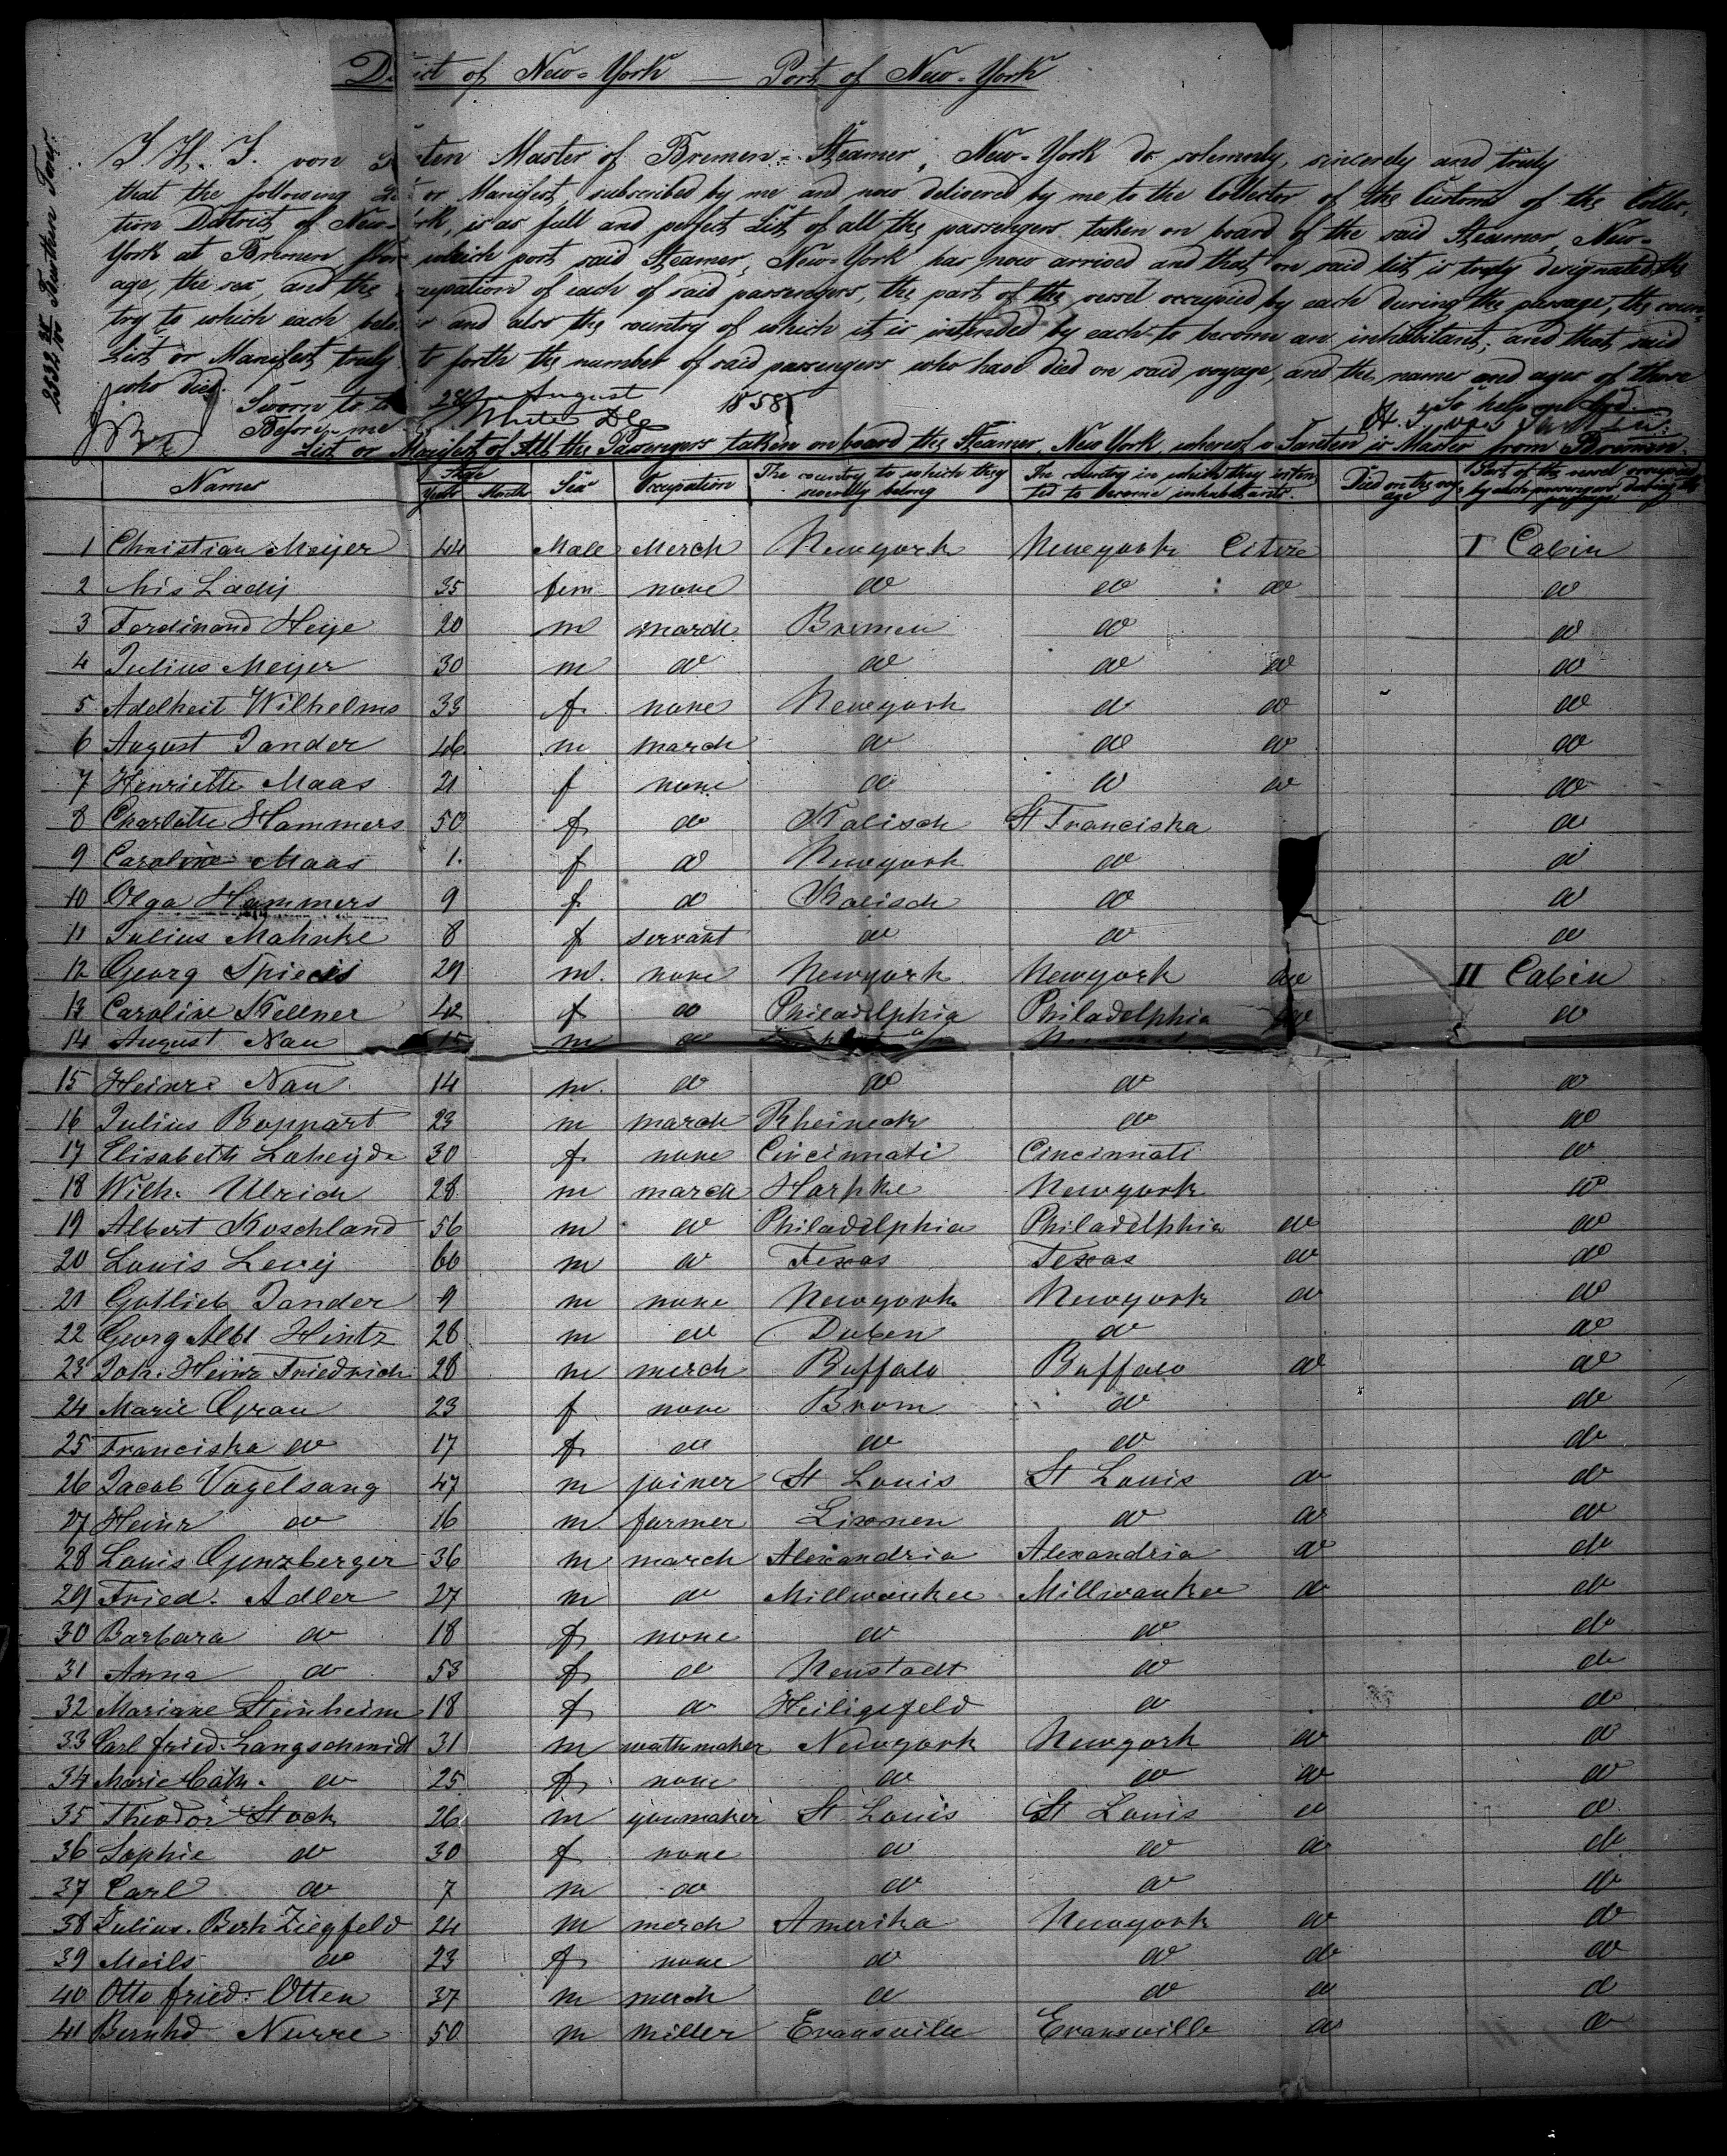 District of New-York — Port of New-York
I H. J. von Santen Master of Bremen-Steamer, New-York do solemnly, sincerely and truly
that the following List or Manifest, subscribed by me and now delivered by me to the Collector of the Customs of the Collec-
tion District of New-York, is as full and perfect List of all the passengers taken on board of the said Steamer, New-
York at Bremen from which port said Steamer, New-York has now arrived and that on said list is truly designated the
age, the sex, and the occupation of each of said passengers, the part of the vessel occupied by each during the passage, the coun-
try to which each belongs and also the country of which it is intended by each to become an inhabitant; and that said
List or Manifest truly sets forth the number of said passengers who have died on said voyage, and the names and ages of those
who died.
So help me God.
Sworn to 28th August 1858
Before me
H. J. von Santen.
2532 Tons
List or Manifest of All the Passengers taken on board the Steamer, New York, whereof v Santen is Master from Bremen.
Names Age Years Month Sex Occupation The country to which they severally belong The country in which they inten- ded to become inhabitants. Died on the voy- age Part of the vessel occupied by each passengers during the passage
1 Christian Meijer 44 Male Merch Newyork Newyork Citize I Cabin
2 his Ladij 35 fem. none do do do do
3 Ferdinand Heye 20 m march Bremen do do
4 Julius Meijer 30 m do do do do do
5 Adelheit Wilhelms 33 f. none Newyork do do do
6 August Jander 46 m march do do do do
7 Henriette Maas 21 f none do do do do
8 Charlotte Hammers 50 f do Kalisch St Franciska do
9 Caroline Maas 1. f do Newyork do do
10 Olga Hammers 9 f. do Kalisch do do
11 Julius Mahnke 8 f servant do do do
12 Georg Spiecis 29 m. none Newyork Newyork do II Cabin
13 Caroline Kellner 42 f do Philadelphia Philadelphia do do
14 August Nau 15 m do
15 Heinr. Nau 14 m. do do do do
16 Julius Boppart 23 m march Rheineck do do
17 Elisabeth Laheijde 30 f. none Cincinnati Cincinnati do
18 Wilh. Ulrich 28 m march Harpke Newyork do
19 Albert Koschland 56 m do Philadelphia Philadelphia do do
20 Louis Levij 60 m do Texas Texas do do
21 Gottlieb Jander 9 m none Newyork Newyork do do
22 Georg Albt Hintz 28 m do Duben do do
23 Joh. Heinr Friedrich 28 m merch Buffalo Buffalo do do
24 Marie Grau 23 f none Brom do do
25 Franciska do 17 f do do do do
26 Jacob Vogelsang 47 m joiner St Louis St Louis do do
27 Heinr do 16 m. farmer Lixonen do do do
28 Louis Gunzberger 36 m march Alexandria Alexandria do do
29 Fried. Adler 27 m do Millwaukee Millwaukee do do
30 Barbara do 18 f none do do do
31 Anna do 53 f do Neustadt do do
32 Mariane Steinheim 18 f do Heiligefeld do do
33 Carl fried. Langschmidt 31 m wathmaker Newyork Newyork do do
34 Marie Cath. do 25 f none do do do do
35 Theodor Stock 26 m gunmaker St Louis St Louis do do
36 Sophie do 30 f none do do do do
37 Carl do 7 m do do do do
38 Julius. Berh Ziegfeld 24 m merch Amerika Newyork do do
39 Meils do 23 f none do do do do
40 Otto fried. Otten 37 m merch do do do do
41 Bernhd Nurre 50 m miller Evansville Evansville do do